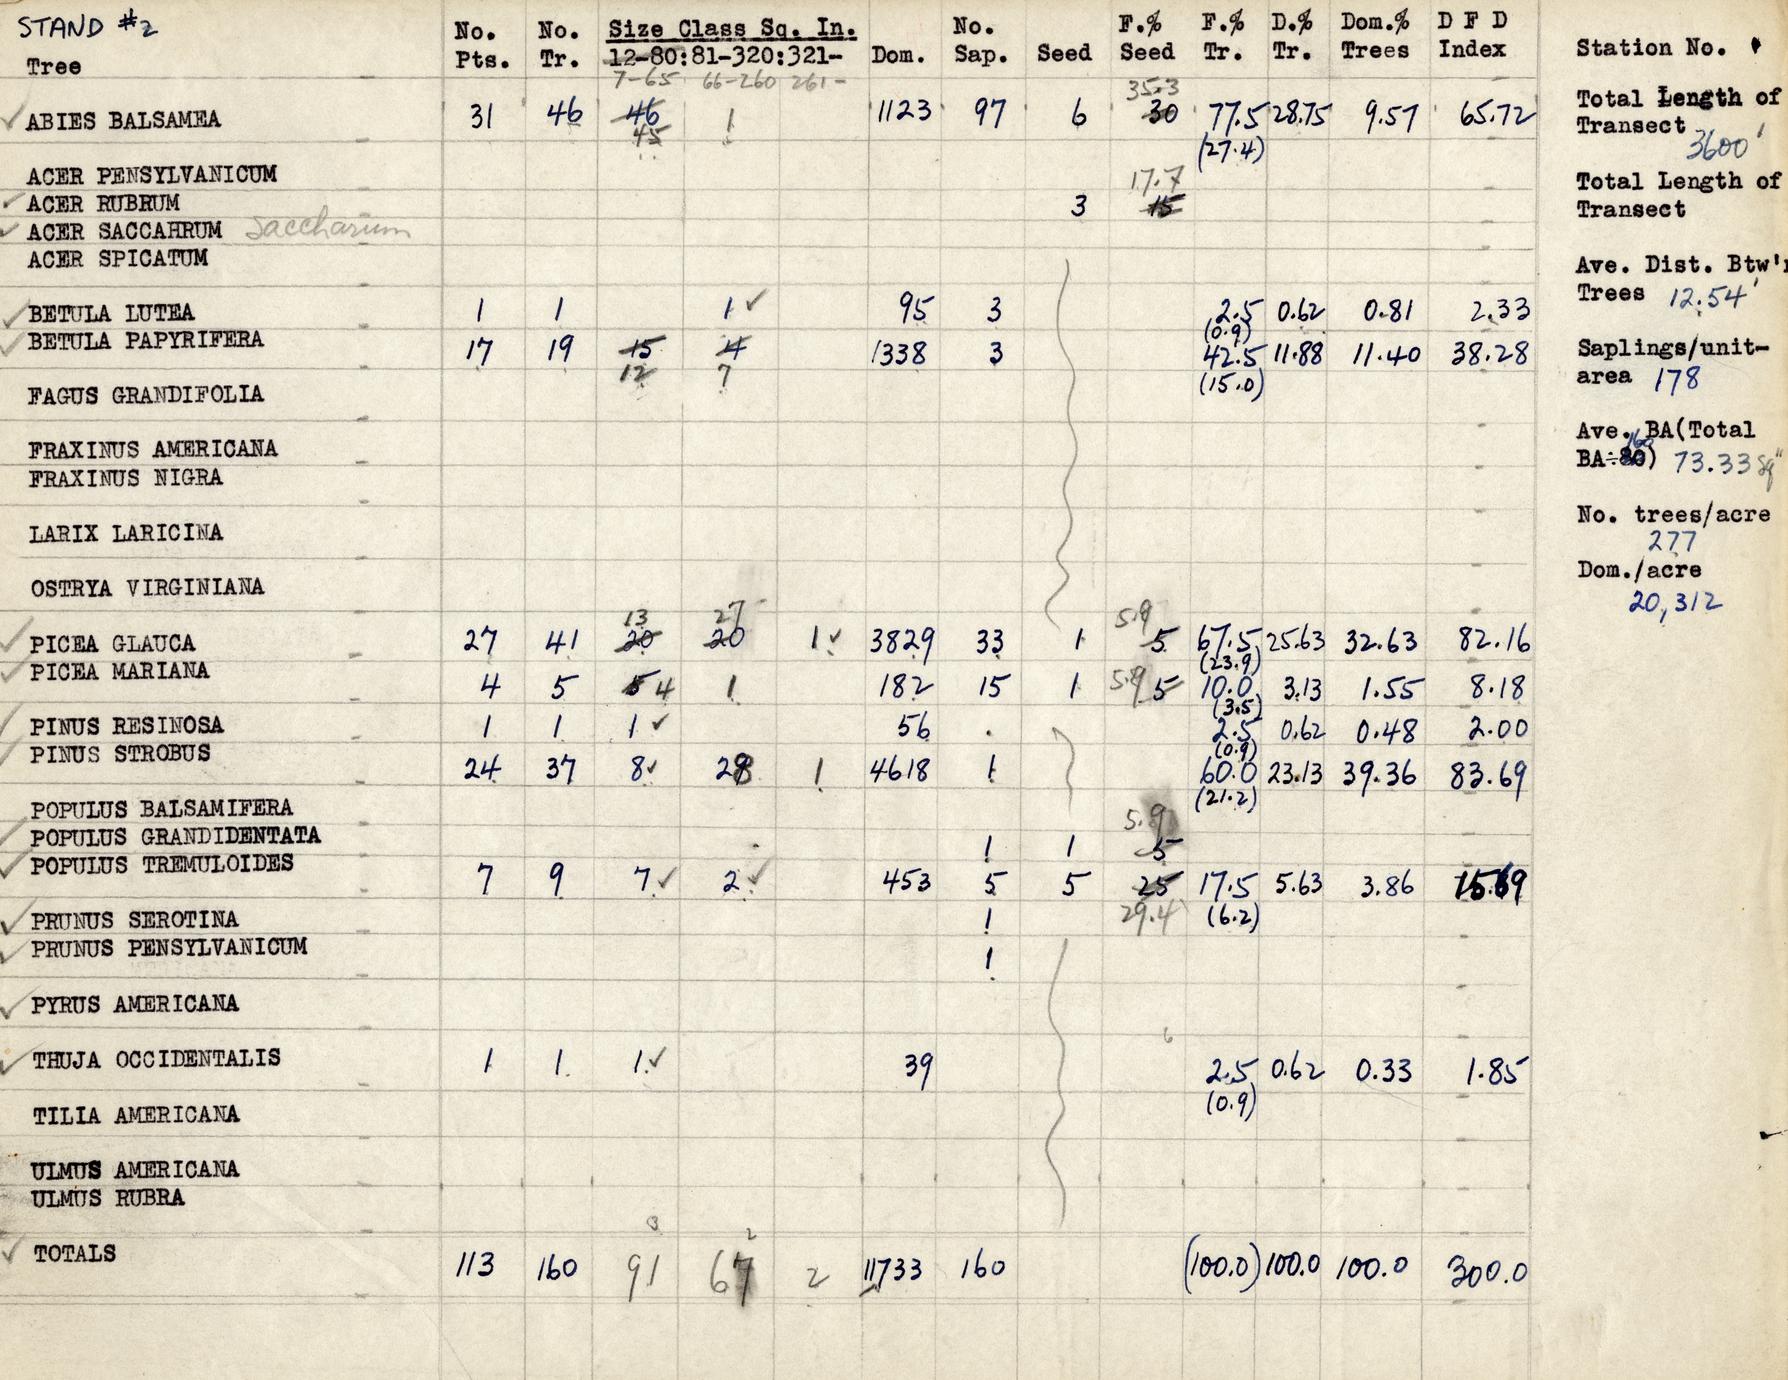 STAND #2
Tree No. Pts. No. Tr. Size Class Sq. In. 12-80:81-320:321- Dom. No. Sap. Seed F.% Seed F.% Tr. D.% Tr. Dom.% Trees D F D Index
7-65 66-260 261-
35.3
ABIES BALSAMEA 31 46 46 1 1123 97 6 30 77.5 28.75 9.57 65.72
45 (27.4)
ACER PENSYLVANICUM 17.7
ACER RUBRUM 3 15
ACER SACCAHRUM Saccharum
ACER SPICATUM
BETULA LUTEA 1 1 1 ✓ 95 3 2.5 0.62 0.81 2.33
(0.9)
BETULA PAPYRIFERA 17 19 15 4 1338 3 42.5 11.88 11.40 38.28
12 7 (15.0)
FAGUS GRANDIFOLIA
FRAXINUS AMERICANA
FRAXINUS NIGRA
LARIX LARICINA
OSTRYA VIRGINIANA
13 27 5.9
PICEA GLAUCA 27 41 20 20 1 ✓ 3829 33 1 5 67.5 25.63 32.63 82.16
(23.9)
PICEA MARIANA 4 5 5 4 1 182 15 1 5.9 5 10.0 3.13 1.55 8.18
(3.5)
PINUS RESINOSA 1 1 1 ✓ 56 2.5 0.62 0.48 2.00
(0.9)
PINUS STROBUS 24 37 8 ✓ 28 1 4618 1 60.0 23.13 39.36 83.69
(21.2)
POPULUS BALSAMIFERA 5.9
POPULUS GRANDIDENTATA 1 1 5
POPULUS TREMULOIDES 7 9 7 ✓ 2 ✓ 453 5 5 25 17.5 5.63 3.86 15.69
29.4 (6.2)
PRUNUS SEROTINA 1
PRUNUS PENSYLVANICUM 1
PYRUS AMERICANA
6
THUJA OCCIDENTALIS 1 1 1 ✓ 39 2.5 0.62 0.33 1.85
(0.9)
TILIA AMERICANA
ULMUS AMERICANA
ULMUS RUBRA
3 2
TOTALS 113 160 91 67 2 11733 160 (100.0) 100.0 100.0 300.0
Station No.
Total Length of
Transect
3600'
Total Length of
Transect
Ave. Dist. Btw'n
Trees 12.54'
Saplings/unit-
area 178
Ave. BA(Total
160
BA÷80) 73.33 sq"
No. trees/acre
277
Dom./acre
20,312